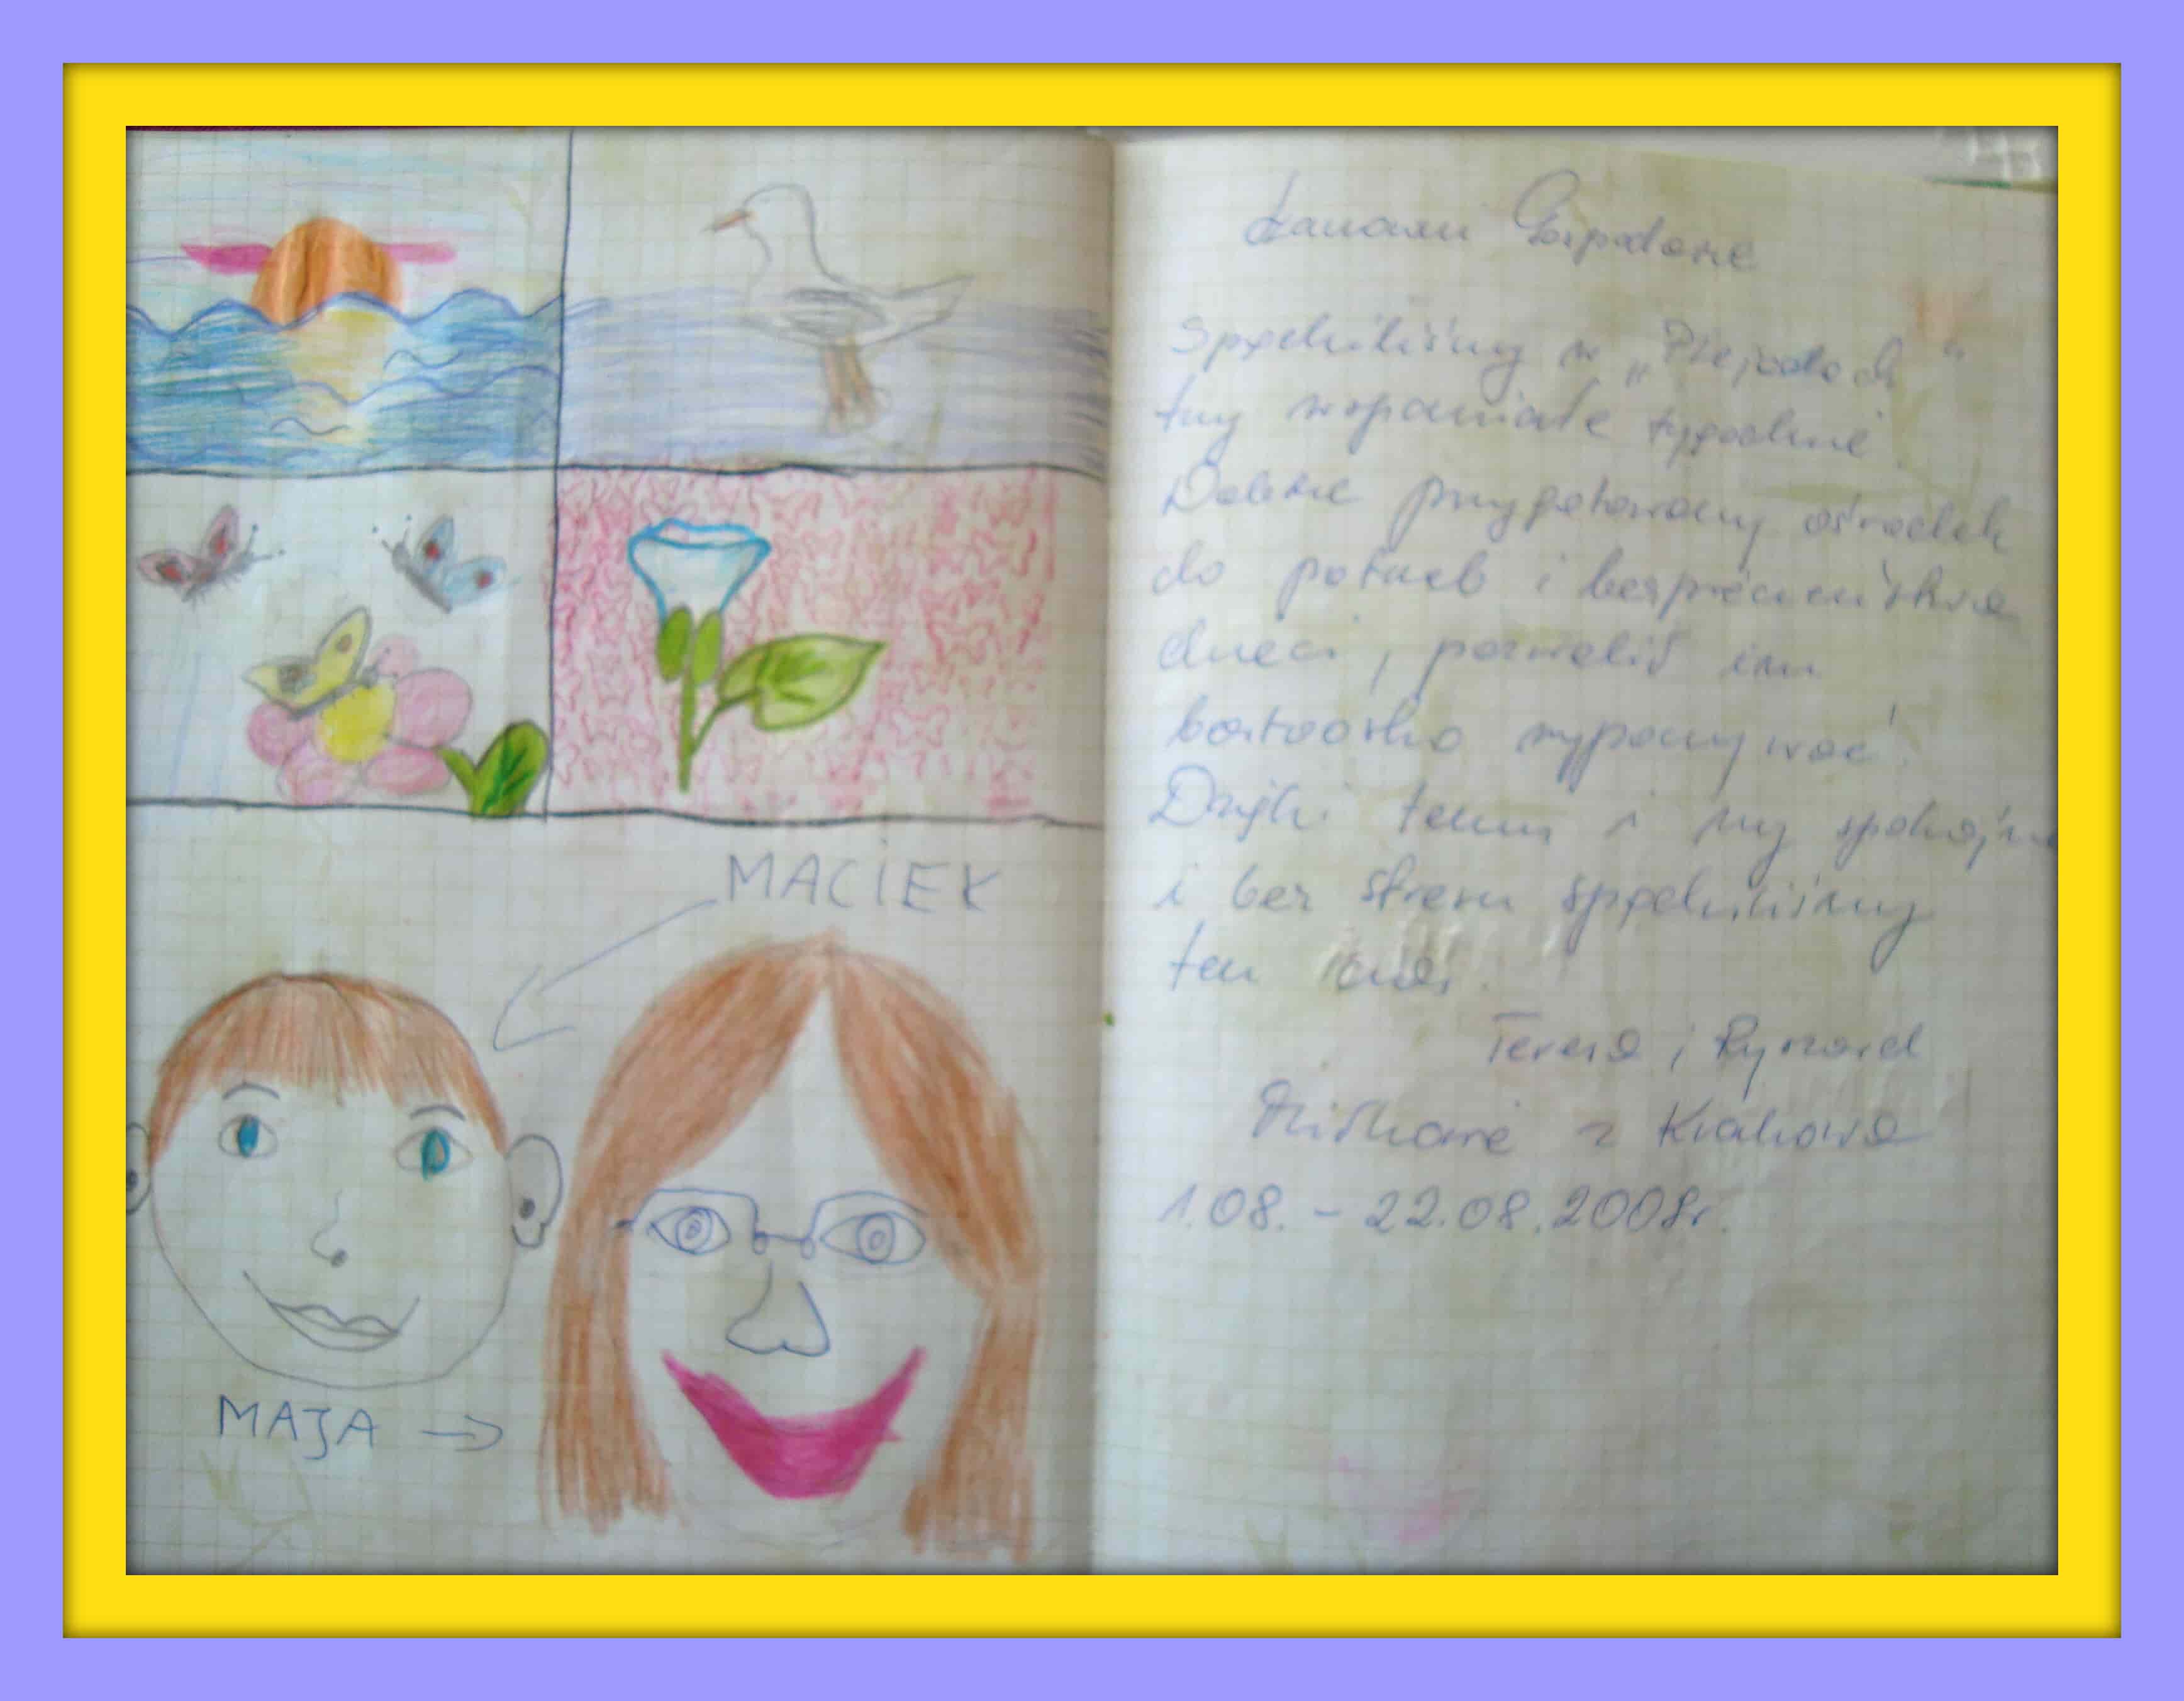 MACIEK
MAJA
Gospodarze
Spędziliśmy w „Plejadach"
trzy wspaniałe tygodnie
Dobrze przygotowany ośrodek
do potrzeb i bezpieczeństwa
dzieci, pozwolił im
beztrosko wypoczywać.
Dzięki temu i my spokojnie
i bez stresu spędziliśmy
ten czas.
Teresa i Ryszard
z Krakowa
1.08. - 22.08.2008r.